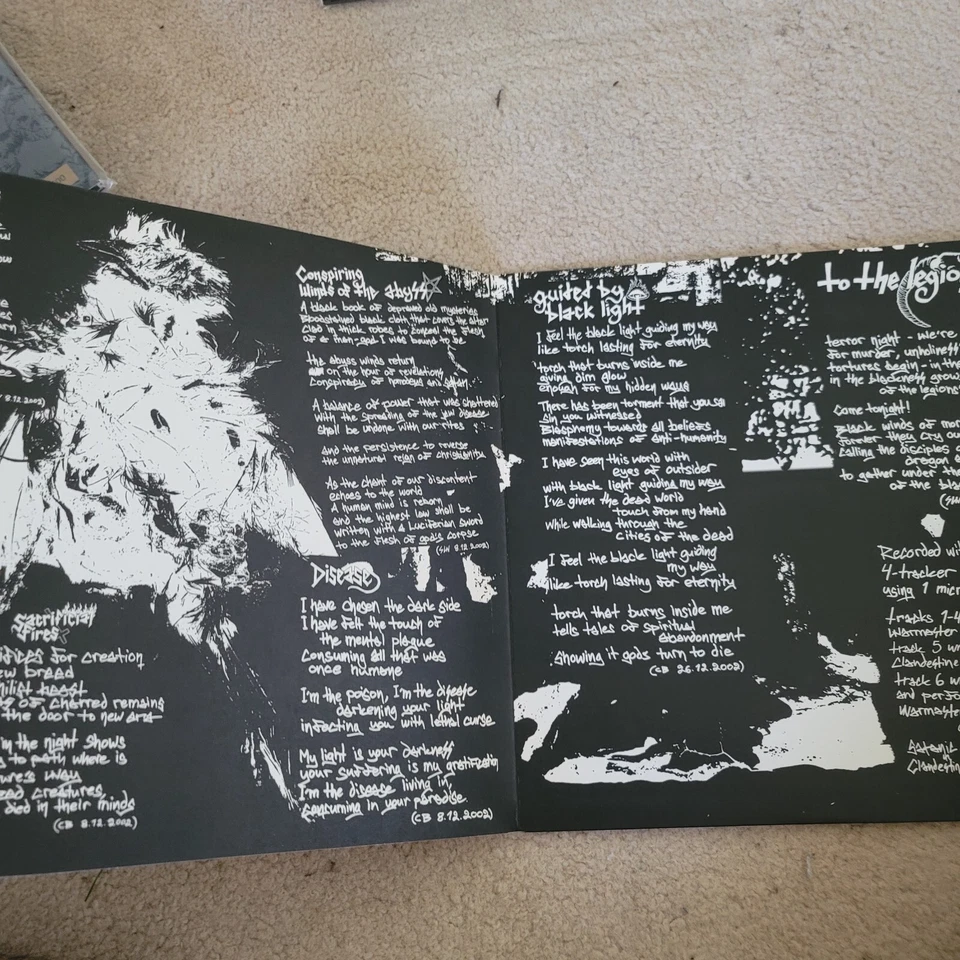 ow
ow
Sacrificial
Fires
for creation
new breed
of charred remains
the door to new era
in the night shows
to path, where is
way
dead creatures
died in their minds
(CB 8.12.2002)
8.12.2002)
Conspiring
Winds of the abyss
A black book of depraved old mysteries
Bloodstained black cloth that covers the altar
Clad in thick robes to conceal the flesh
of a man-god I was bound to be
the abyss winds return
on the hour of revelations
Conspiracy of and
A balance of power that was shattered
with the spreading of the jew disease
shall be undone with our rites
and the persistence to reverse
the unnatural reign of christianity
As the chant of our discontent
echoes to the world
A human mind is reborn
and the highest law shall be
written with a Luciferian sword
to the flesh of gods corpse
(SW 8.12.2002)
Disease
I have chosen the dark side
I have felt the touch of
the mental plague
Consuming all that was
once humane
I'm the poison, I'm the disease
darkening your light
infecting you with lethal curse
My light is your darkness
your suffering is my gratification
I'm the disease living in,
consuming in your paradise
(CB 8.12.2002)
guided by
black light
I feel the black light guiding my way
like torch lasting for eternity
torch that burns inside me
giving dim glow
enough for my hidden ways
There has been torment that you saw
Sin you witnessed
Blasphemy towards all beliefs
manifestations of anti-humanity
I have seen this world with
eyes of outsider
with black light guiding my way
I've given the dead world
touch from my hand
while walking through the
cities of the dead
I feel the black light guiding
my way
like torch lasting for eternity
torch that burns inside me
tells tales of spiritual
abandonment
showing it gods turn to die
(CB 26.12.2002)
to the legio
terror night - we're
for murder, unholiness
tortures begin - in the
in the blackness grow
of the legions
Come tonight!
Black winds of
former they cry ou
Calling the disciples o
to gather under the
of the bla
(SW
Recorded wit
4-tracker
using 1 micr
tracks 1-4
Warmaster
track 5 wr
Clandestine
track 6 w
and perfo
Warmaste
Satanic
Clandestin